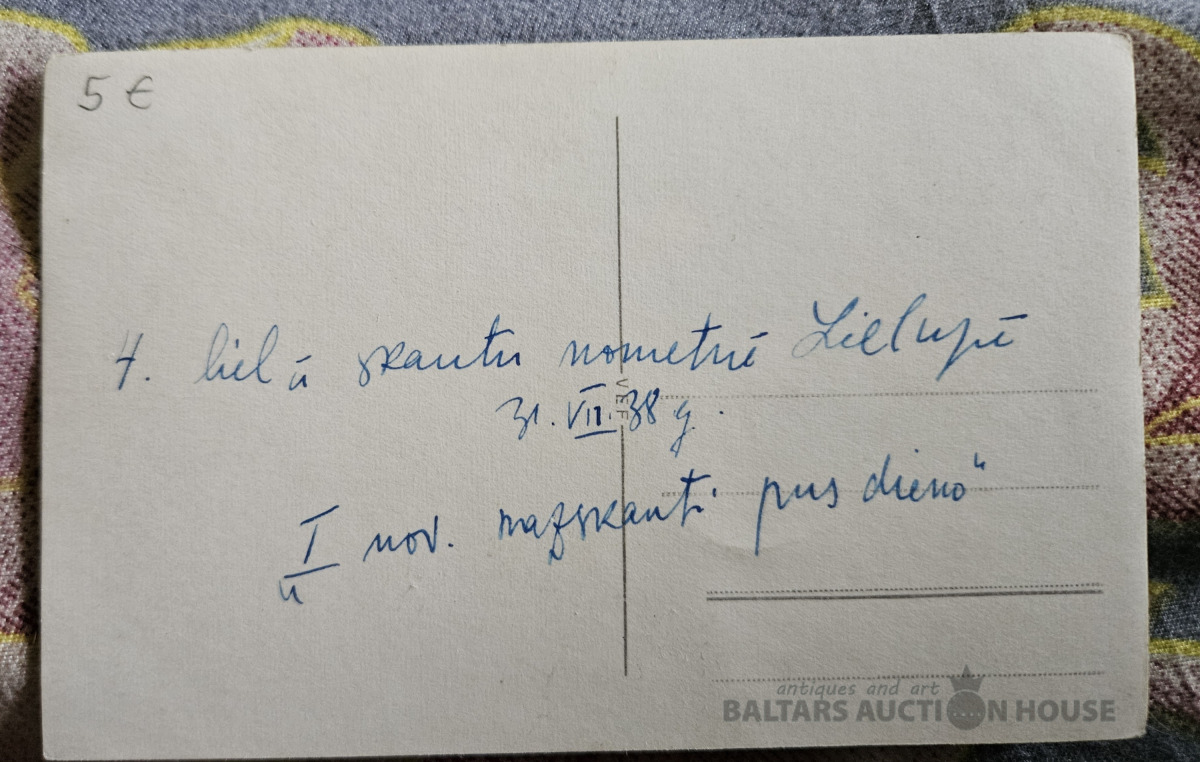 5 €
4. lielā skautu nometnē Lielupē
VEF
31. VII. 38 g.
„I nov. mazskauti pusdieno"
antiques and art
BALTARS AUCTION HOUSE